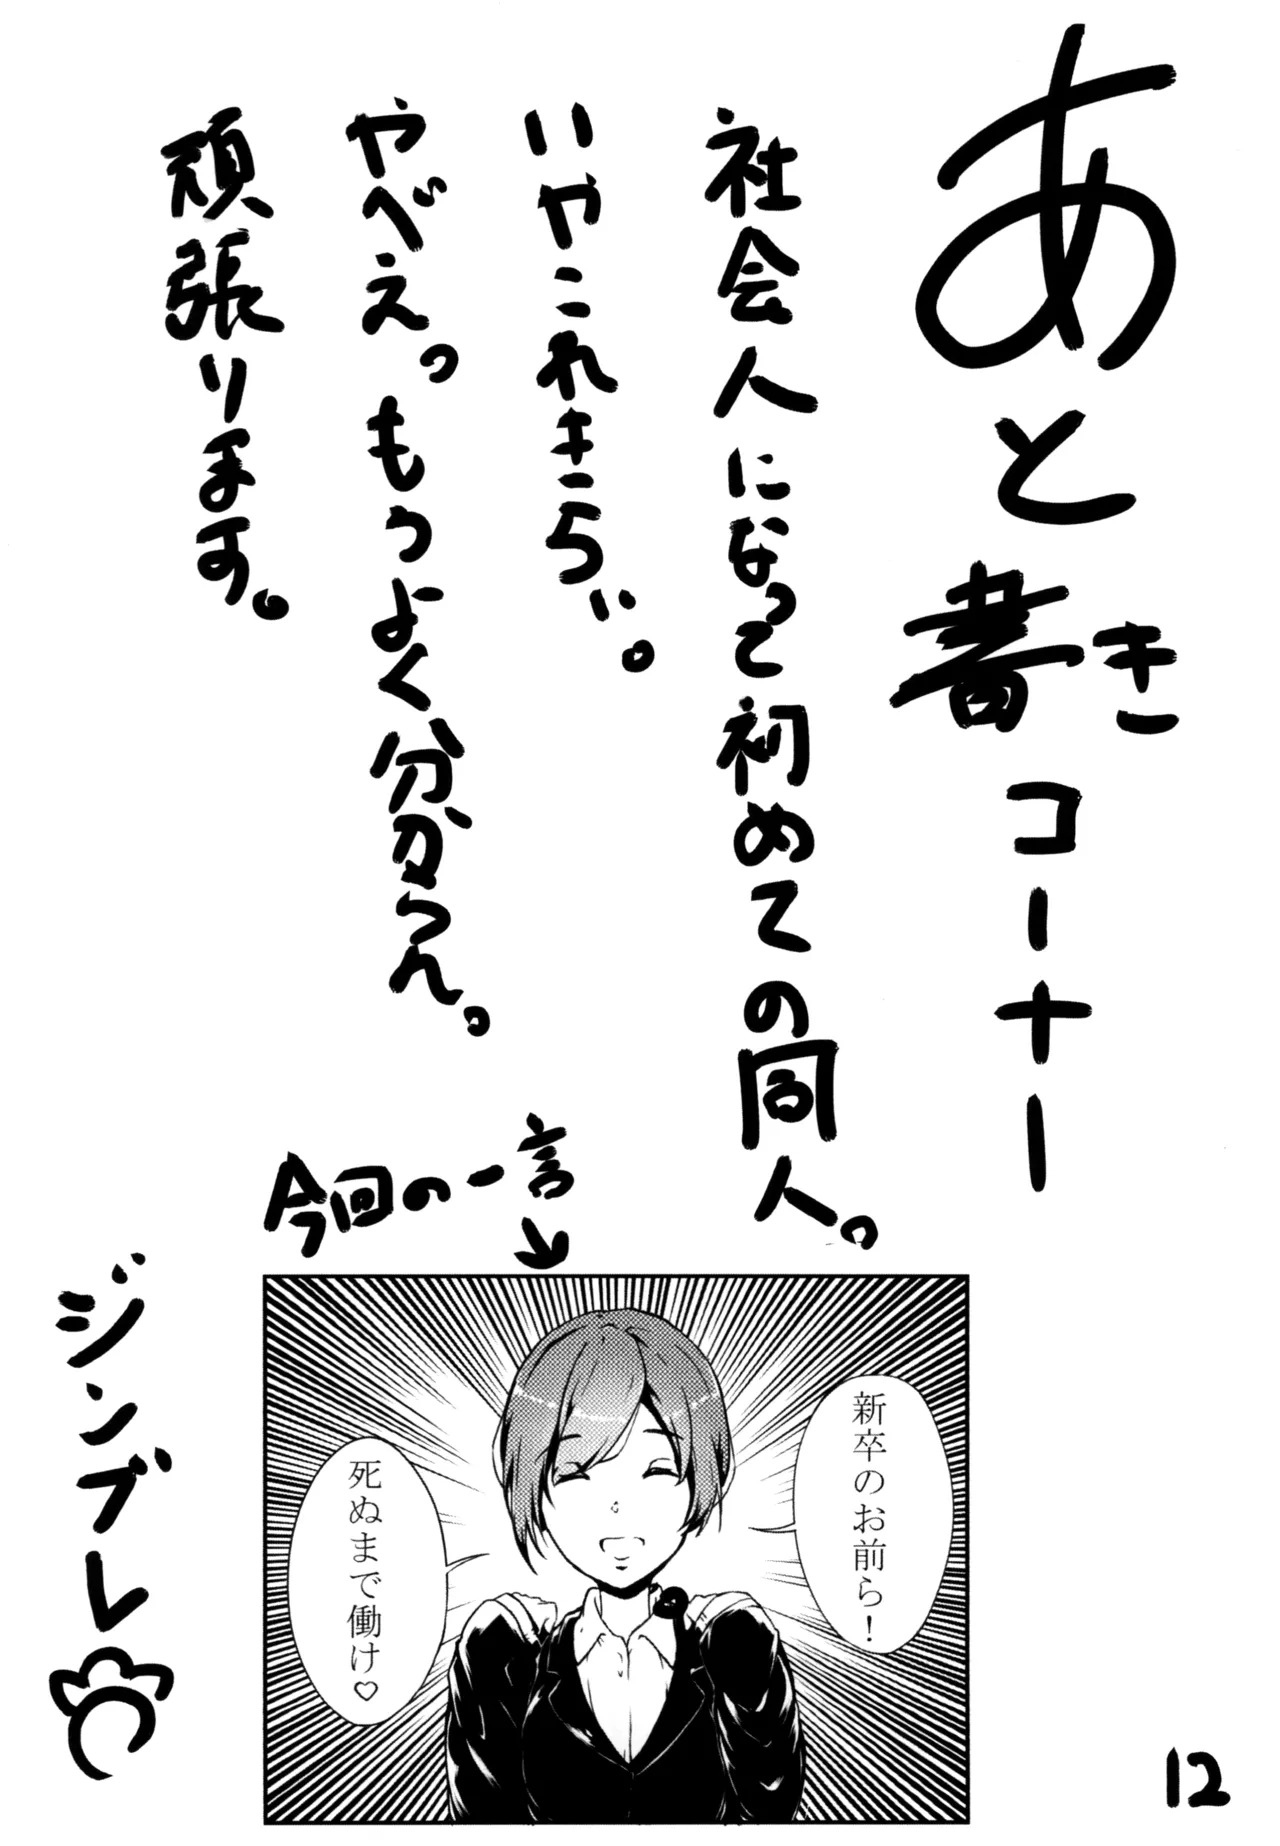 あと書きコーナー
社会人になって初めての同人。
いやこれきちぃ。
やべえっ。もうよく分からん。
頑張ります。
今回の一言
↓
新卒のお前ら！
死ぬまで働け♡
ジンブレ
12